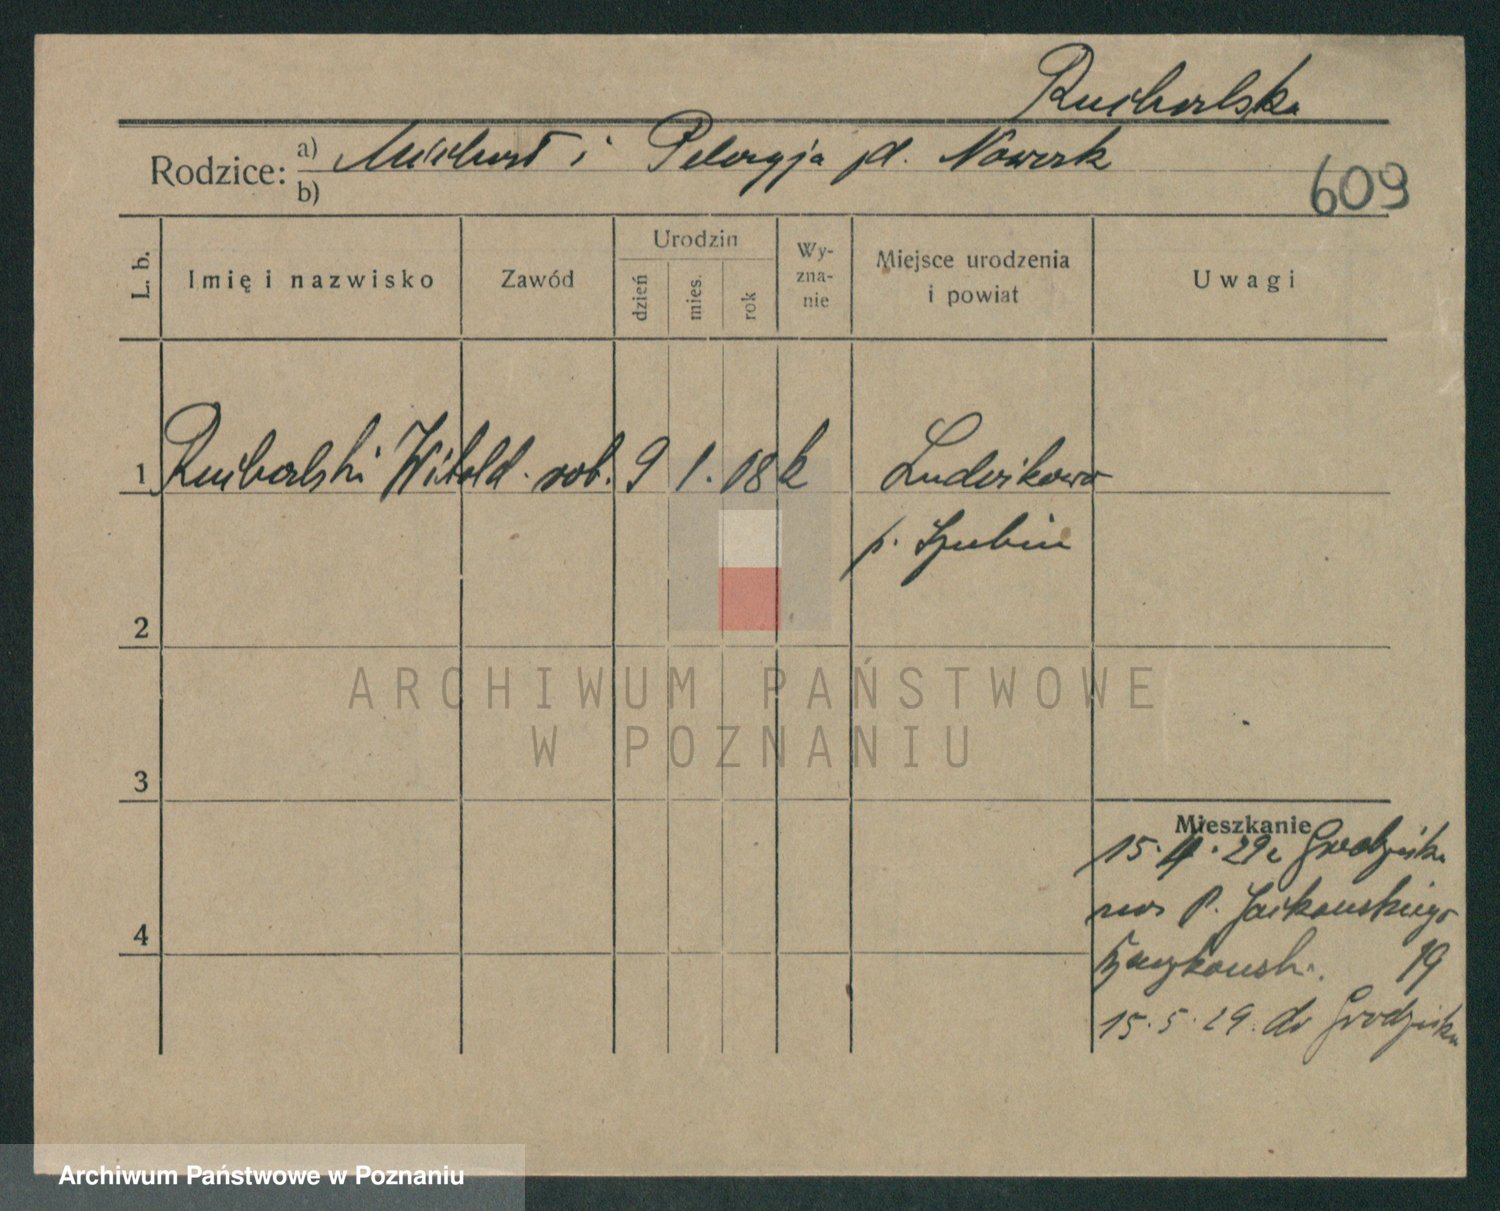 Rucharlska
Rodzice: a) Michał i Pelagja zd. Nowak
b)
609
L. b.
Imię i nazwisko
Zawód
Urodzin
dzień
mies.
rok
Wy-
zna-
nie
Miejsce urodzenia
i powiat
Uwagi
1 Witold rob. 9 1. 18 k Ludwikowo
p. Szubin
2
ARCHIWUM PAŃSTWOWE
W POZNANIU
3
Mieszkanie
15. 4. 29 z Grodziska
P. Jackowskiego
4
19
15. 5. 29. do Grodziska
Archiwum Państwowe w Poznaniu